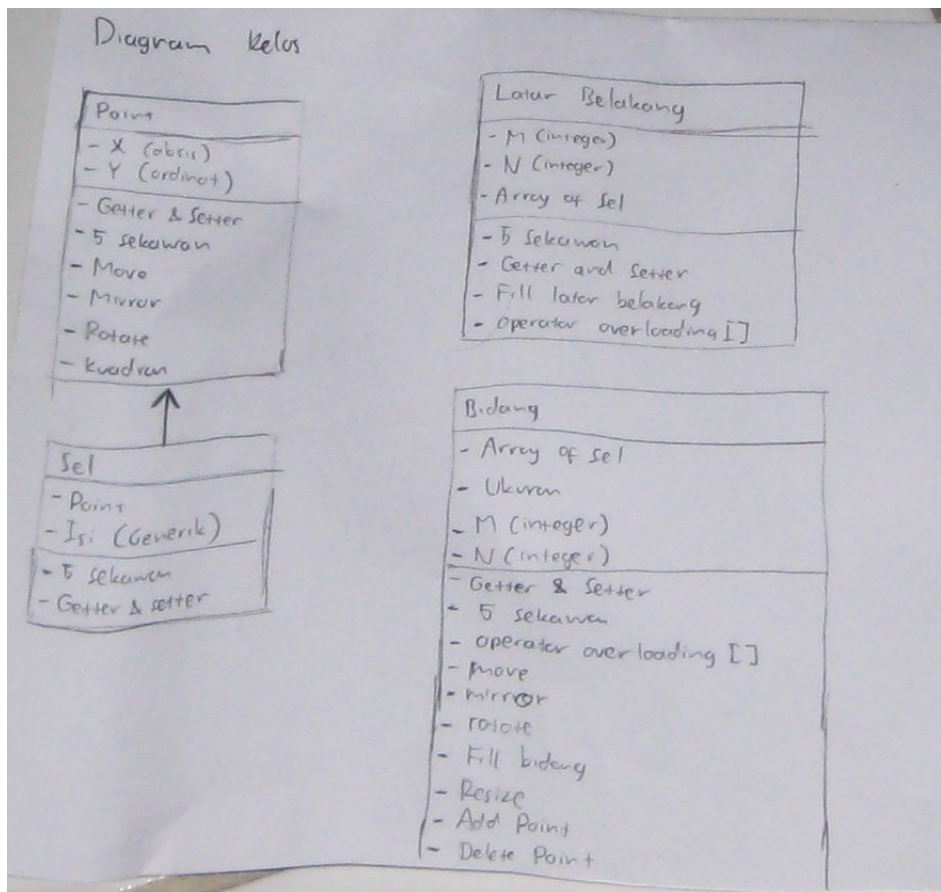 Diagram Kelas
Point
- X (absis)
- Y (ordinat)
- Getter & Setter
- 5 sekawan
- Move
- Mirror
- Rotate
- kuadran
Sel
- Point
- Isi (Generik)
- 5 sekawan
- Getter & setter
Latar Belakang
- M (integer)
- N (integer)
- Array of Sel
- 5 sekawan
- Getter and Setter
- Fill latar belakang
- operator overloading []
Bidang
- Array of Sel
- Ukuran
- M (integer)
- N (integer)
- Getter & Setter
- 5 sekawan
- operator overloading []
- move
- mirror
- rotate
- Fill bidang
- Resize
- Add Point
- Delete Point